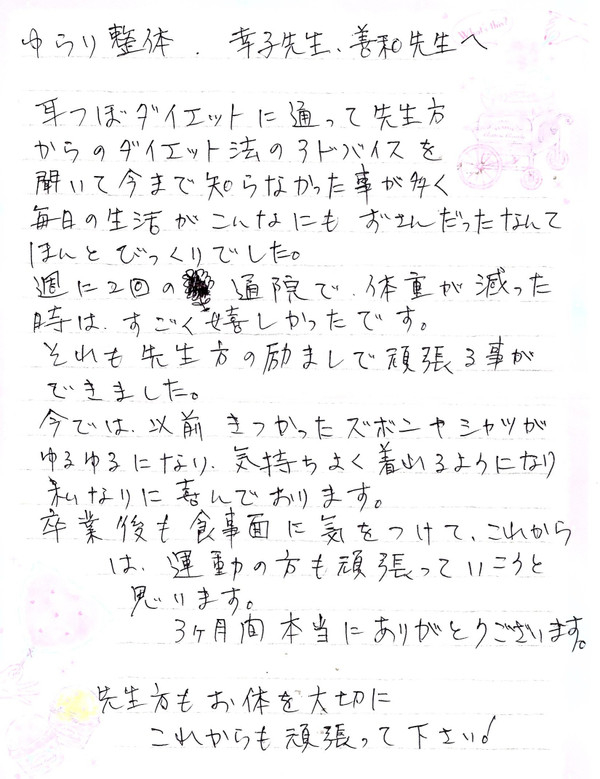 ゆらり整体. 幸子先生、善和先生へ
耳つぼダイエットに通って先生方
からのダイエット法のアドバイスを
聞いて今まで知らなかった事が多く
毎日の生活がこんなにもずさんだったなんて
ほんとびっくりでした。
週に2回の通院で、体重が減った
時は、すごく嬉しかったです。
それも先生方の励ましで頑張る事が
できました。
今では、以前きつかったズボンやシャツが
ゆるゆるになり、気持ちよく着れるようになり
私なりに喜んでおります。
卒業後も食事面に気をつけて、これから
は、運動の方も頑張っていこうと
思います。
3ヶ月間本当にありがとうございます。
先生方もお体を大切に
これからも頑張って下さい!